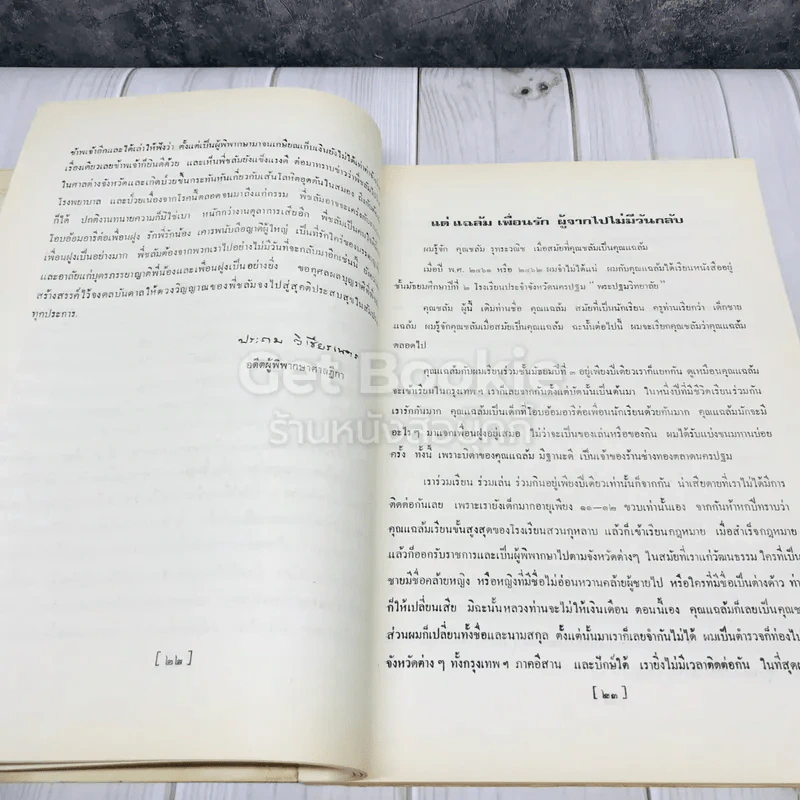 ข้าพเจ้าอีกและได้เล่าให้ฟังว่า ตั้งแต่เป็นผู้พิพากษามาจนเกษียณเก็บเงินยังไม่ได้เท่า
เรื่องเดียวเลยข้าพเจ้าก็ยินดีด้วย และเห็นพี่ชลัมยังแข็งแรงดี ต่อมาทราบข่าวว่าพี่ชลัม
ในศาลต่างจังหวัดและเกิดป่วยขึ้นกระทันหันเกี่ยวกับเส้นโลหิตอุดตันในสมอง
โรงพยาบาล และป่วยเนื่องจากโรคนี้ตลอดจนมาถึงแก่กรรม พี่ชลัมอาจจะเคร่ง
ก็ได้ ปกติงานทนายความก็มิใช่เบา หนักกว่างานตุลาการเสียอีก พี่ชลัมเป็นคน
โอบอ้อมอารีต่อเพื่อนฝูง รักพี่รักน้อง เคารพนับถือญาติผู้ใหญ่ เป็นที่รักใคร่ของ
เพื่อนฝูงเป็นอย่างมาก พี่ชลัมต้องจากพวกเราไปอย่างไม่มีวันที่จะกลับมาอีกเช่นนี้
และอาลัยแก่บุตรภรรยาญาติพี่น้องและเพื่อนฝูงเป็นอย่างยิ่ง ขอกุศลผลบุญราศีที่
สร้างสรรค์ไว้จงดลบันดาลให้ดวงวิญญาณของพี่ชลัมจงไปสู่สุคติประสบสุขใน
ทุกประการ.
ประถม วิเชียรเนตร
อดีตผู้พิพากษาศาลฎีกา
[ ๒๒ ]
แต่ แฉล้ม เพื่อนรัก ผู้จากไปไม่มีวันกลับ
ผมรู้จัก คุณชลัม รุทระวณิช เมื่อสมัยที่คุณชลัมเป็นคุณแฉล้ม
เมื่อปี พ.ศ. ๒๔๖๑ หรือ ๒๔๖๒ ผมจำไม่ได้แน่ ผมกับคุณแฉล้มได้เรียนหนังสืออยู่
ชั้นมัธยมศึกษาปีที่ ๒ โรงเรียนประจำจังหวัดนครปฐม "พระปฐมวิทยาลัย"
คุณชลัม ผู้นี้ เดิมท่านชื่อ คุณแฉล้ม สมัยที่เป็นนักเรียน ครูท่านเรียกว่า เด็กชาย
แฉล้ม ผมรู้จักคุณชลัมเมื่อสมัยเป็นคุณแฉล้ม ฉะนั้นต่อไปนี้ ผมจะเรียกคุณชลัมว่าคุณแฉล้ม
ตลอดไป
คุณแฉล้มกับผมเรียนร่วมชั้นมัธยมปีที่ ๑ อยู่เพียงปีเดียวเราก็แยกกัน ดูเหมือนคุณแฉล้ม
จะเข้าเรียนในกรุงเทพ ฯ เราก็เลยจากกันตั้งแต่บัดนั้นเป็นต้นมา ในหนึ่งปีที่มีชีวิตเรียนร่วมกัน
เรารักกันมาก คุณแฉล้มเป็นเด็กที่โอบอ้อมอารีต่อเพื่อนนักเรียนด้วยกันมาก คุณแฉล้มมักจะมี
อะไร ๆ มาแจกเพื่อนฝูงอยู่เสมอ ไม่ว่าจะเป็นของเล่นหรือของกิน ผมได้รับแบ่งขนมทานบ่อย
ครั้ง ทั้งนี้ เพราะบิดาของคุณแฉล้ม มีฐานะดี เป็นเจ้าของร้านช่างทองตลาดนครปฐม
เราร่วมเรียน ร่วมเล่น ร่วมกินอยู่เพียงปีเดียวเท่านั้นก็จากกัน น่าเสียดายที่เราไม่ได้มีการ
ติดต่อกันเลย เพราะเรายังเด็กมากอายุเพียง ๑๑-๑๒ ขวบเท่านั้นเอง จากกันห้าหกปีทราบว่า
คุณแฉล้มเรียนชั้นสูงสุดของโรงเรียนสวนกุหลาบ แล้วก็เข้าเรียนกฎหมาย เมื่อสำเร็จกฎหมาย
แล้วก็ออกรับราชการและเป็นผู้พิพากษาไปตามจังหวัดต่างๆ ในสมัยที่เราแก่วัฒนธรรม ใครที่เป็น
ชายมีชื่อคล้ายหญิง หรือหญิงที่มีชื่อไม่อ่อนหวานคล้ายผู้ชายไป หรือใครที่มีชื่อเป็นต่างด้าว ท่า
ก็ให้เปลี่ยนเสีย มิฉะนั้นหลวงท่านจะไม่ให้เงินเดือน ตอนนี้เอง คุณแฉล้มก็เลยเป็นคุณช
ส่วนผมก็เปลี่ยนทั้งชื่อและนามสกุล ตั้งแต่นั้นมาเราก็เลยจำกันไม่ได้ ผมเป็นตำรวจก็ท่องไป
จังหวัดต่าง ๆ ทั้งกรุงเทพ ฯ ภาคอีสาน และปักษ์ใต้ เรายิ่งไม่มีเวลาติดต่อกัน ในที่สุด
[ ๒๓ ]
Get Bookie
ร้านหนังสือนุกดี